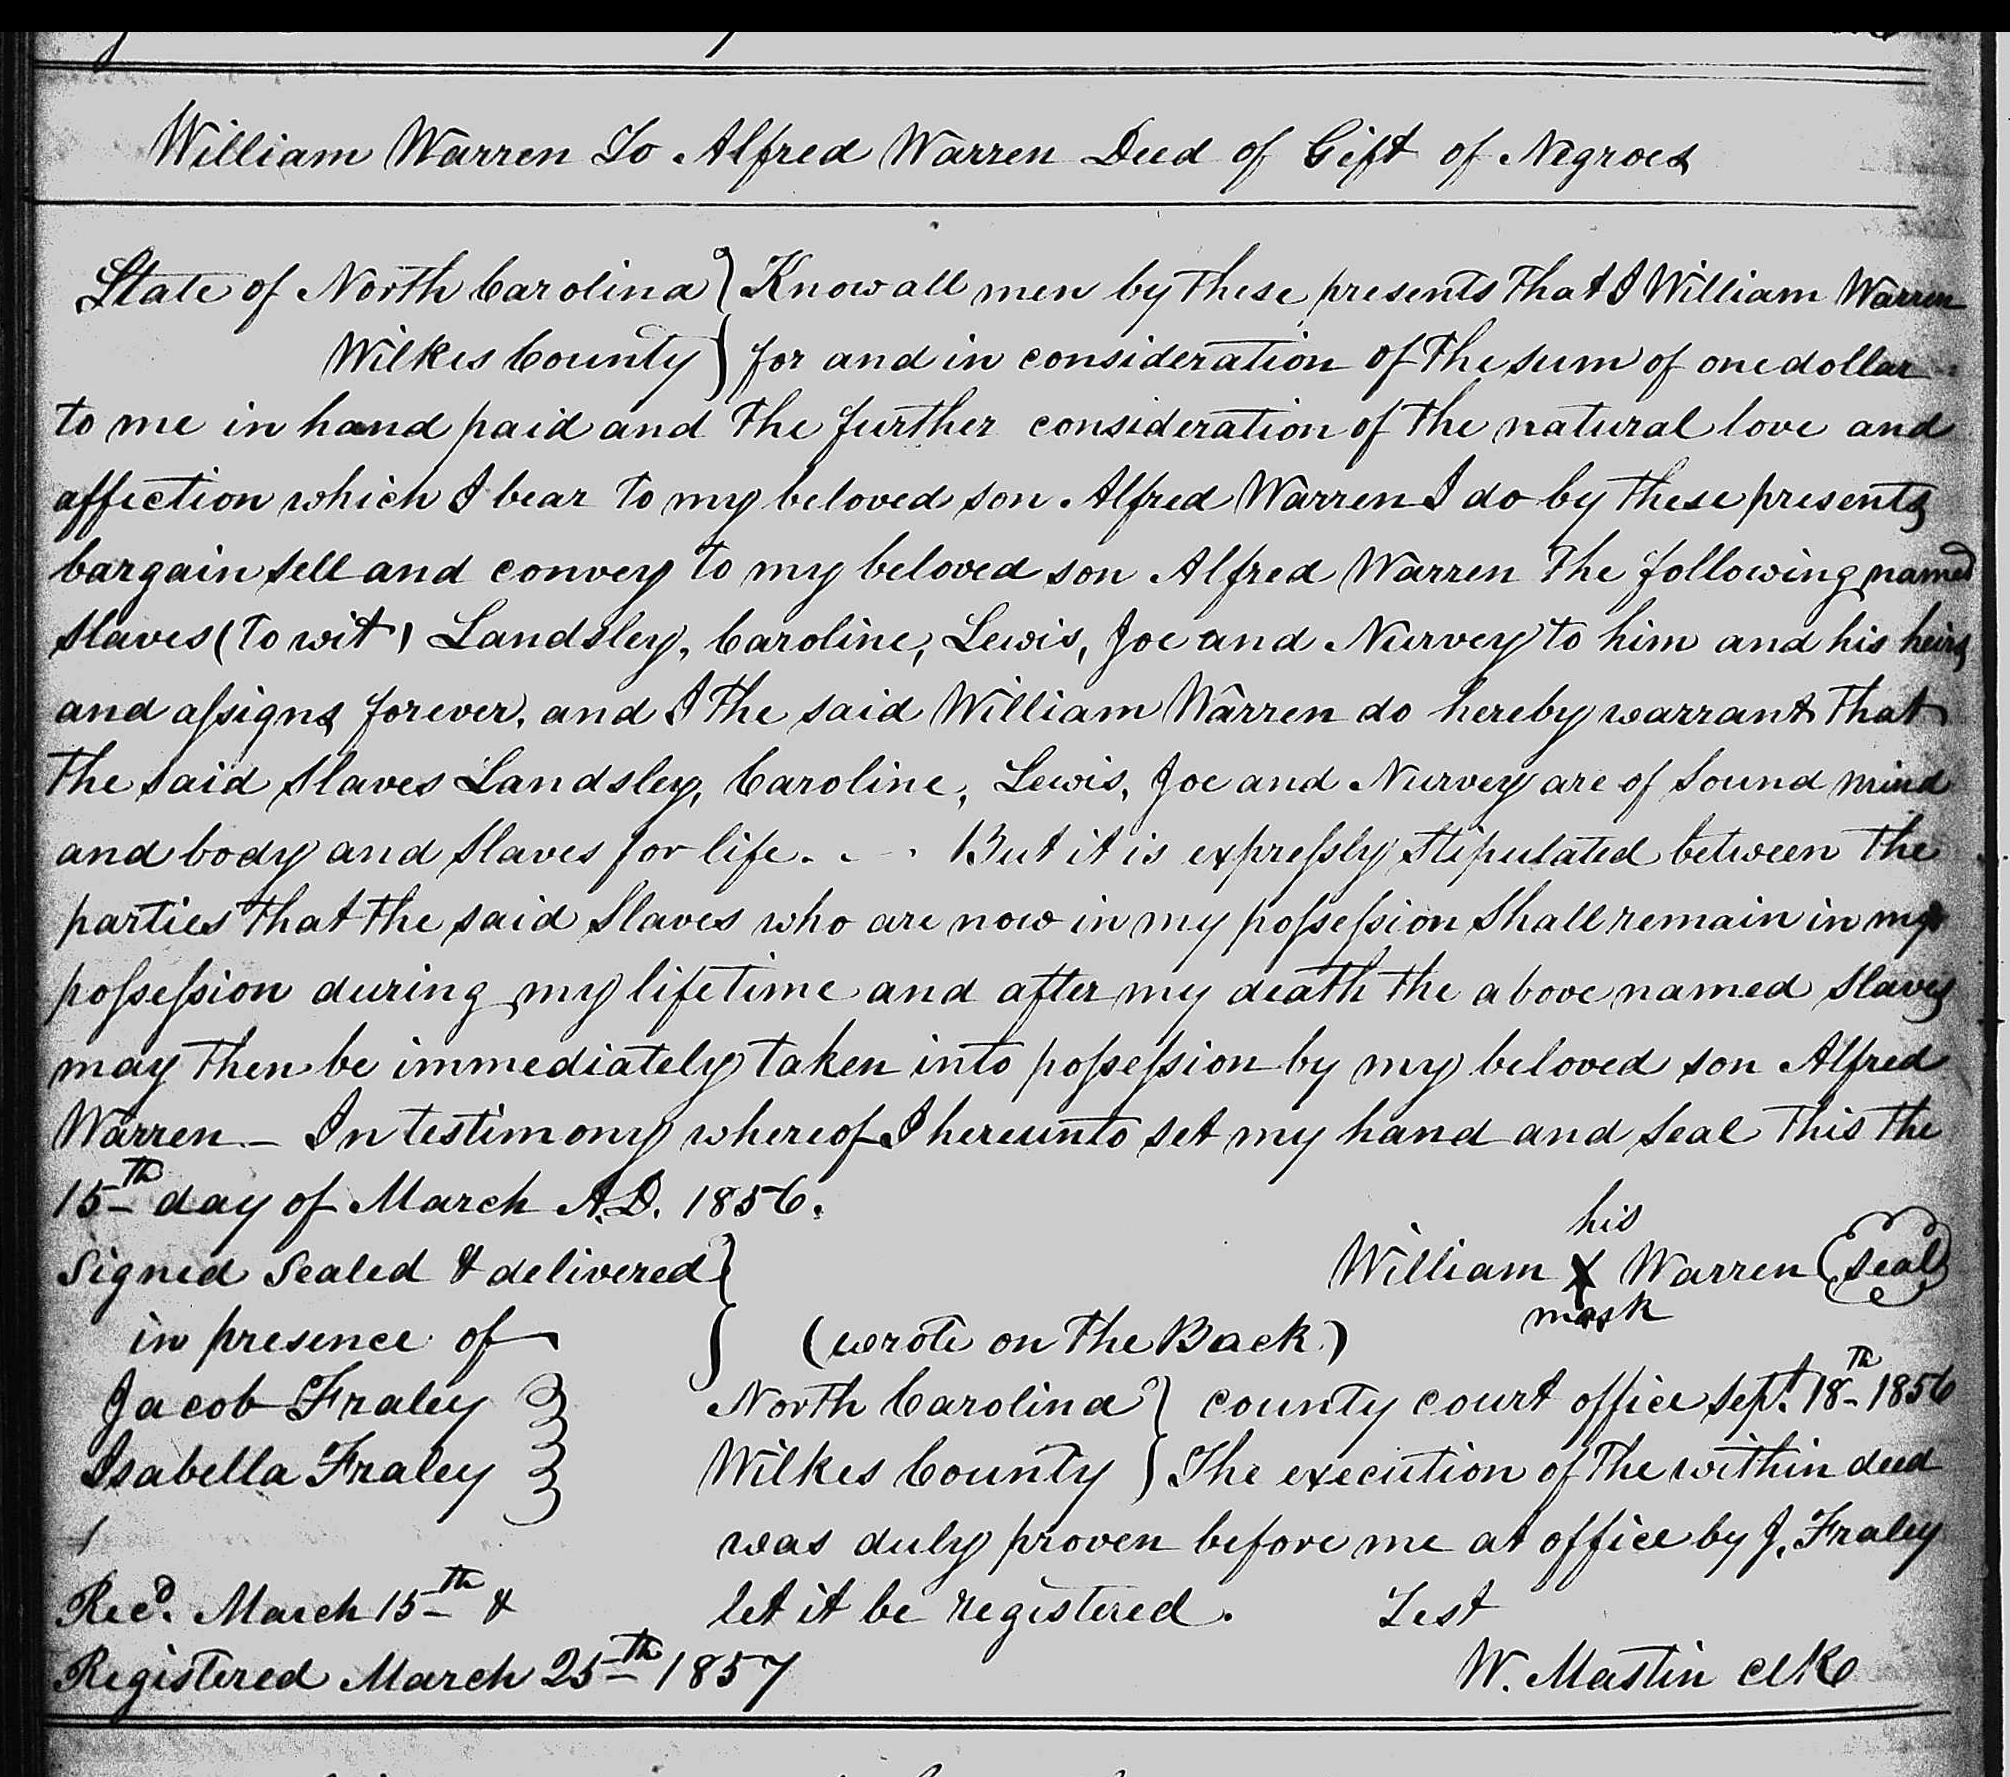 William Warren To Alfred Warren Deed of Gift of Negroes
State of North Carolina } Know all men by these presents that I William Warren
Wilkes County } for and in consideration of the sum of one dollar
to me in hand paid and the further consideration of the natural love and
affection which I bear to my beloved son Alfred Warren I do by these presents
bargain sell and convey to my beloved son Alfred Warren the following named
slaves (to wit) Landsley, Caroline, Lewis, Joe and Nurvey to him and his heirs
and assigns forever, and I the said William Warren do hereby warrant that
the said slaves Landsley, Caroline, Lewis, Joe and Nurvey are of sound mind
and body and slaves for life. - - But it is expressly stipulated between the
parties that the said slaves who are now in my possession shall remain in my
possession during my lifetime and after my death the above named slaves
may then be immediately taken into possession by my beloved son Alfred
Warren - In testimony whereof I hereunto set my hand and seal this the
15th day of March A.D. 1856.
his
Signed Sealed & delivered } William X Warren (seal)
mark
in presence of } (wrote on the Back)
Jacob Fraley } North Carolina } county court office Sept. 18th 1856
Isabella Fraley } Wilkes County } The execution of the within deed
was duly proven before me at office by J. Fraley
Recd. March 15th & let it be registered. Test
Registered March 25th 1857 W. Mastin clk